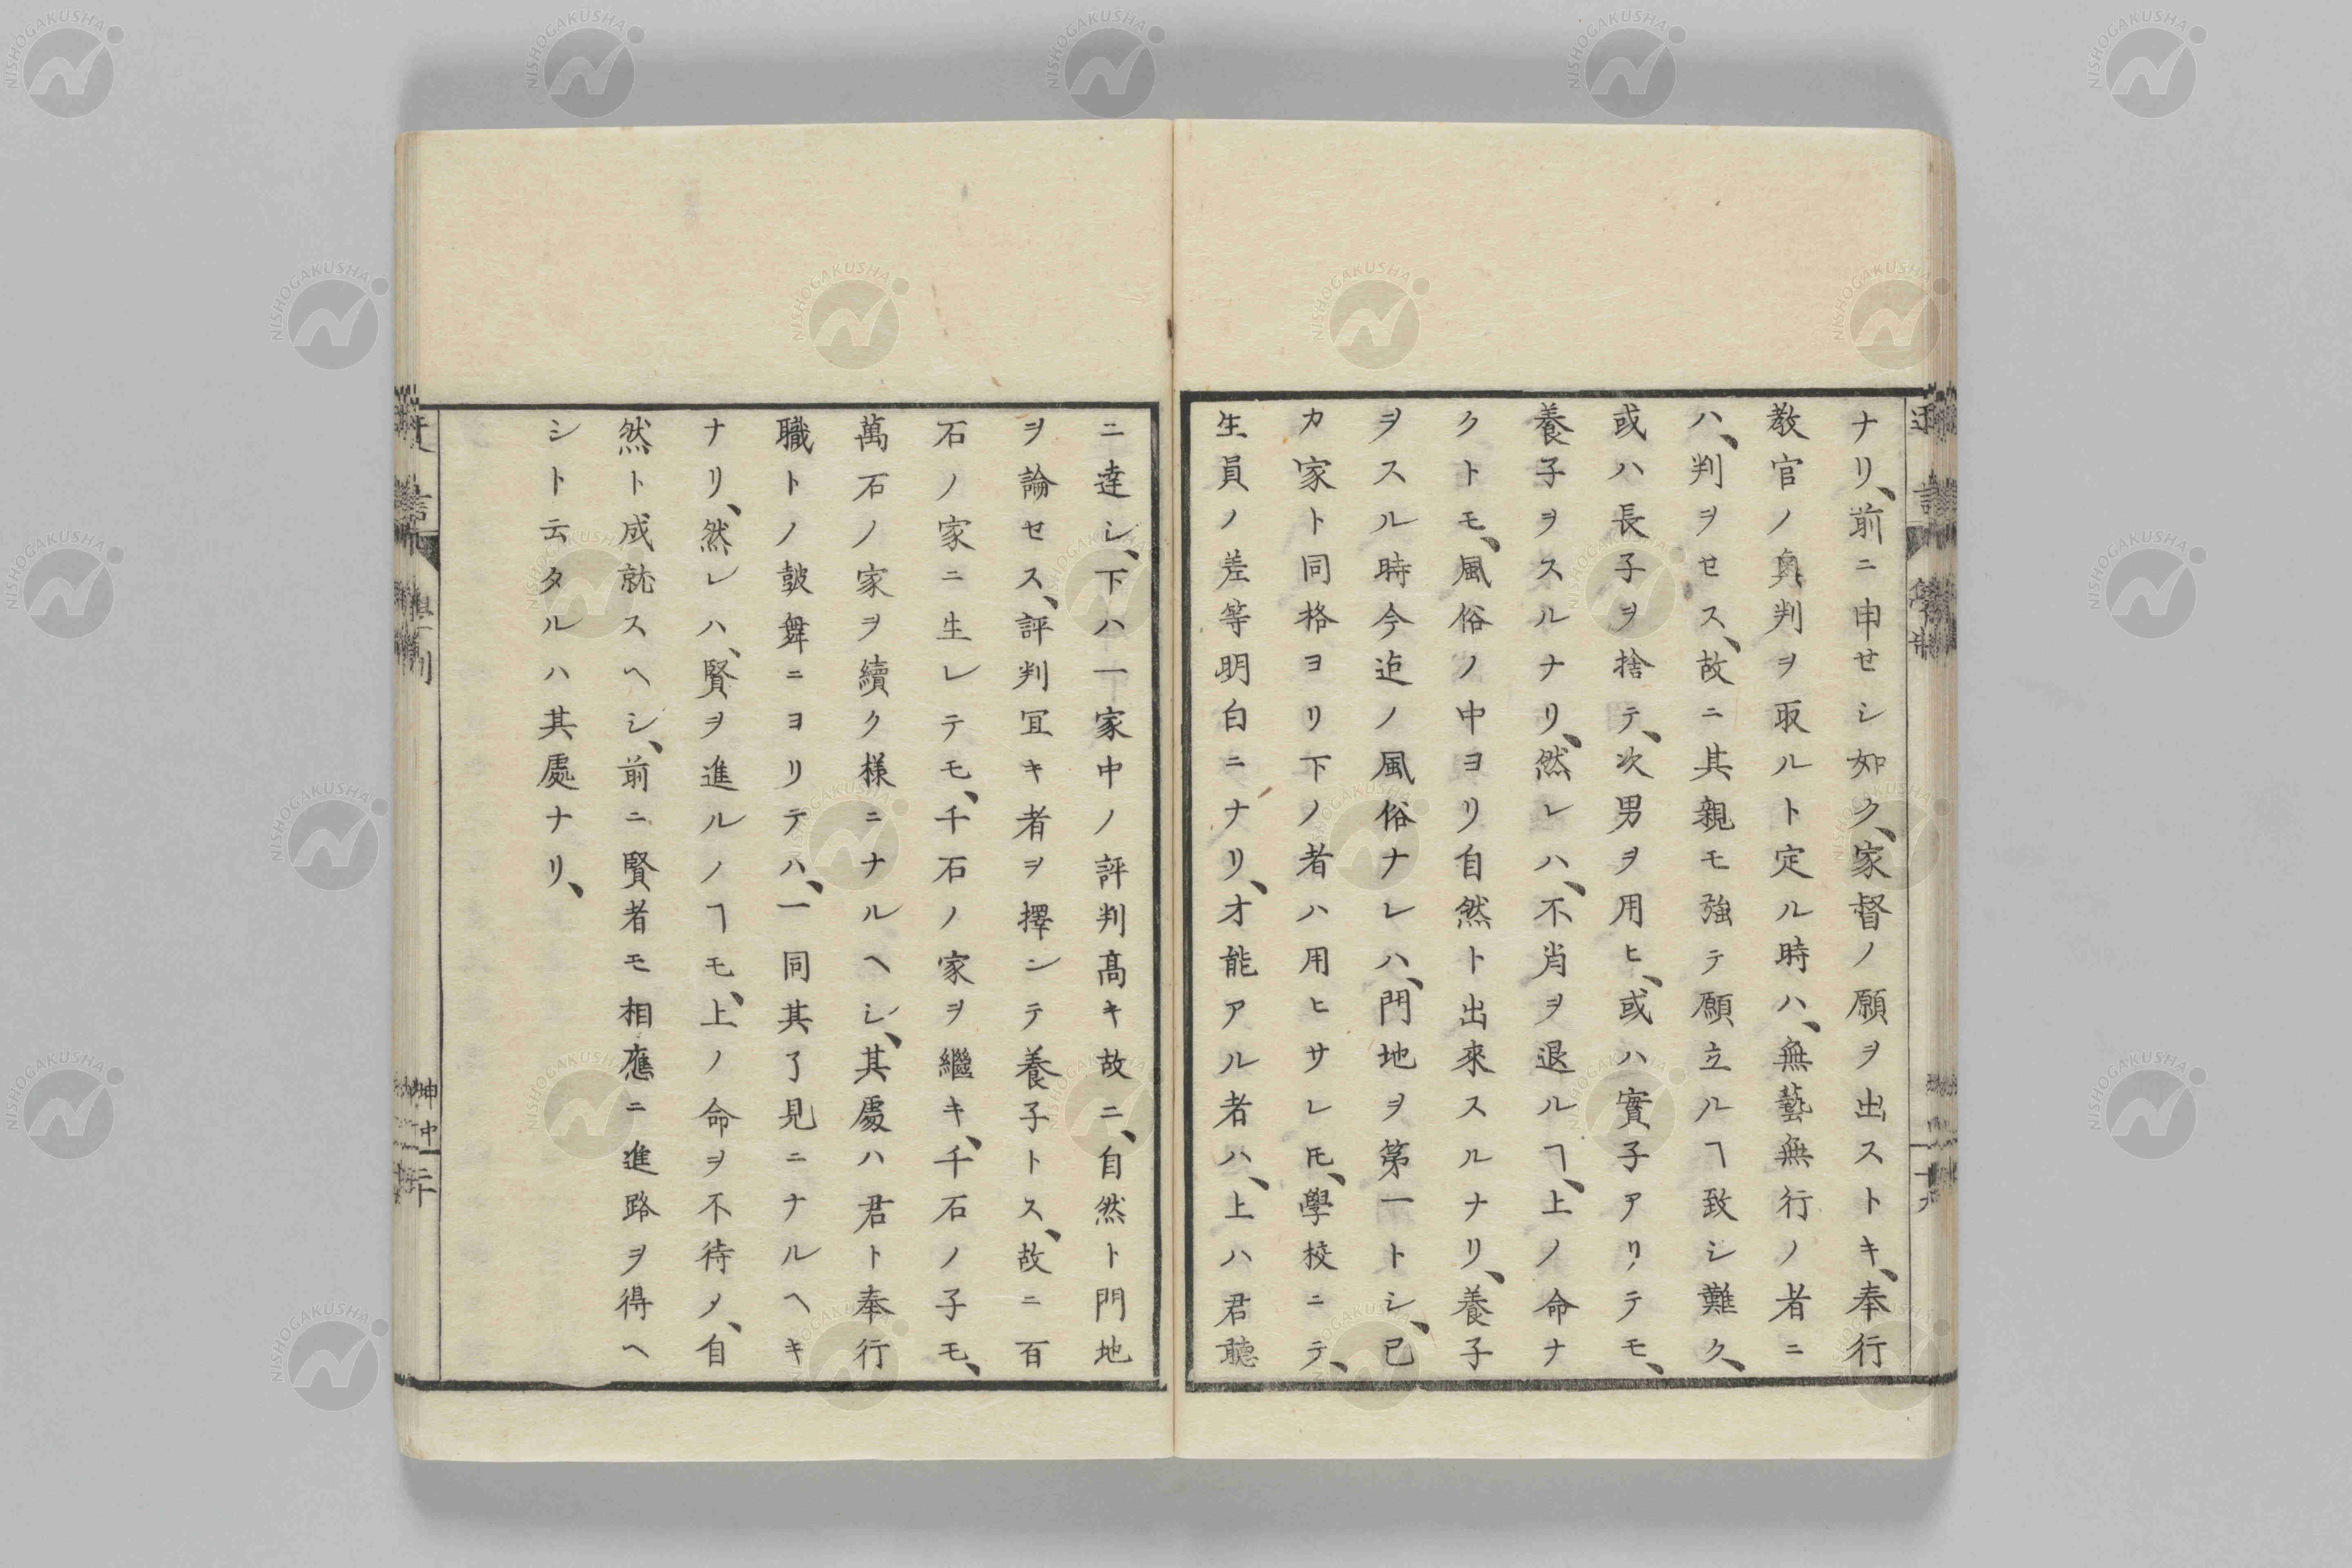 ナリ、前ニ申セシ如ク、家督ノ願ヲ出ストキ、奉行
教官ノ眞判ヲ取ルト定ル時ハ、無藝無行ノ者ニ
ハ、判ヲセス、故ニ其親モ強テ願立ルヿ致シ難ク、
或ハ長子ヲ捨テ、次男ヲ用ヒ、或ハ實子アリテモ、
養子ヲスルナリ、然レハ、不肖ヲ退ルヿ、上ノ命ナ
クトモ、風俗ノ中ヨリ自然ト出來スルナリ、養子
ヲスル時今迠ノ風俗ナレハ、門地ヲ第一トシ、已
カ家ト同格ヨリ下ノ者ハ用ヒサレ𪜈、學校ニテ、
生員ノ差等明白ニナリ、才能アル者ハ、上ハ君聽
ニ達シ、下ハ一家中ノ評判高キ故ニ、自然ト門地
ヲ論セス、評判冝キ者ヲ擇ンテ養子トス、故ニ百
石ノ家ニ生レテモ、千石ノ家ヲ繼キ、千石ノ子モ、
萬石ノ家ヲ續ク様ニナルヘシ、其處ハ君ト奉行
職トノ皷舞ニヨリテハ、一同其了見ニナルヘキ
ナリ、然レハ、賢ヲ進ルノヿモ、上ノ命ヲ不待ノ、自
然ト成就スヘシ、前ニ賢者モ相應ニ進路ヲ得ヘ
シト云タルハ其處ナリ、
NISHOGAKUSHA